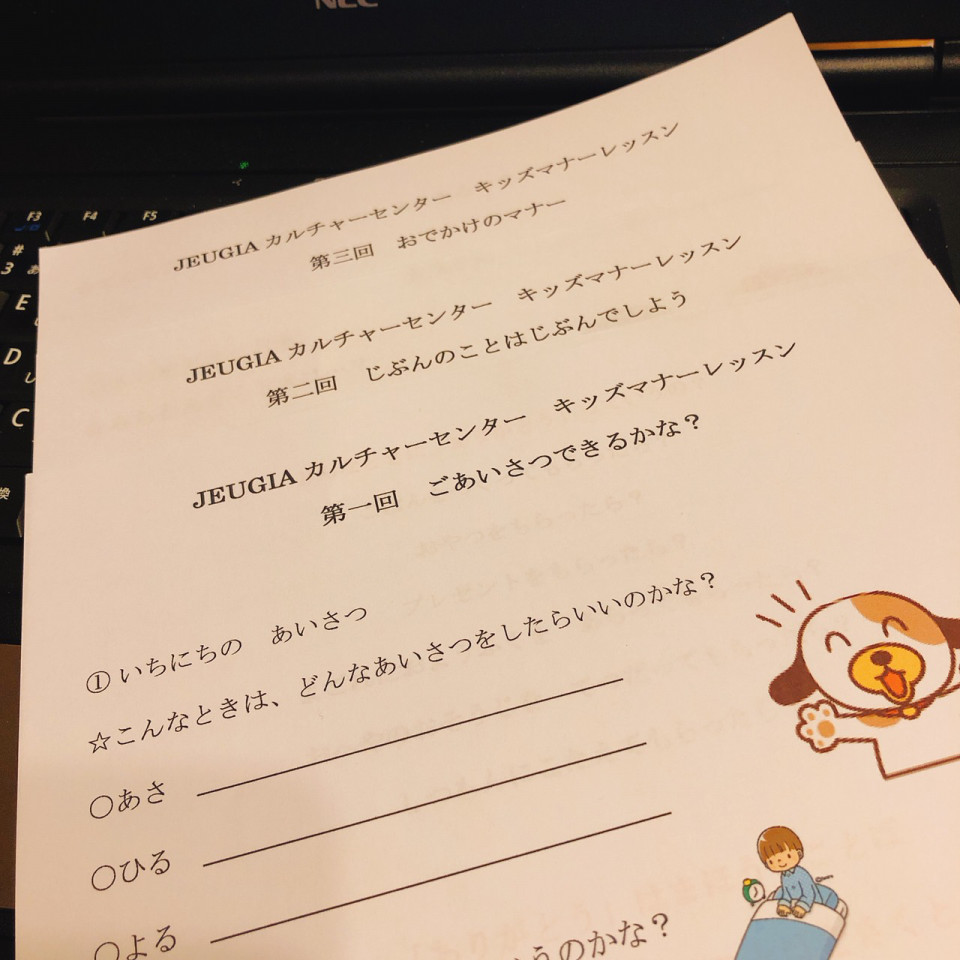 NEC
F3 F4 F5
#
3 あ
E
D
し
C
換
JEUGIA カルチャーセンター　キッズマナーレッスン
第三回　おでかけのマナー
JEUGIA カルチャーセンター　キッズマナーレッスン
第二回　じぶんのことはじぶんでしよう
JEUGIA カルチャーセンター　キッズマナーレッスン
第一回　ごあいさつできるかな？
①いちにちの　あいさつ
☆こんなときは、どんなあいさつをしたらいいのかな？
○あさ
○ひる
○よる
うのかな？